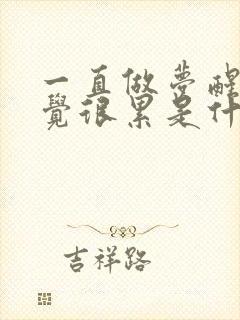 一直做夢醒
覺很累是什
吉祥路